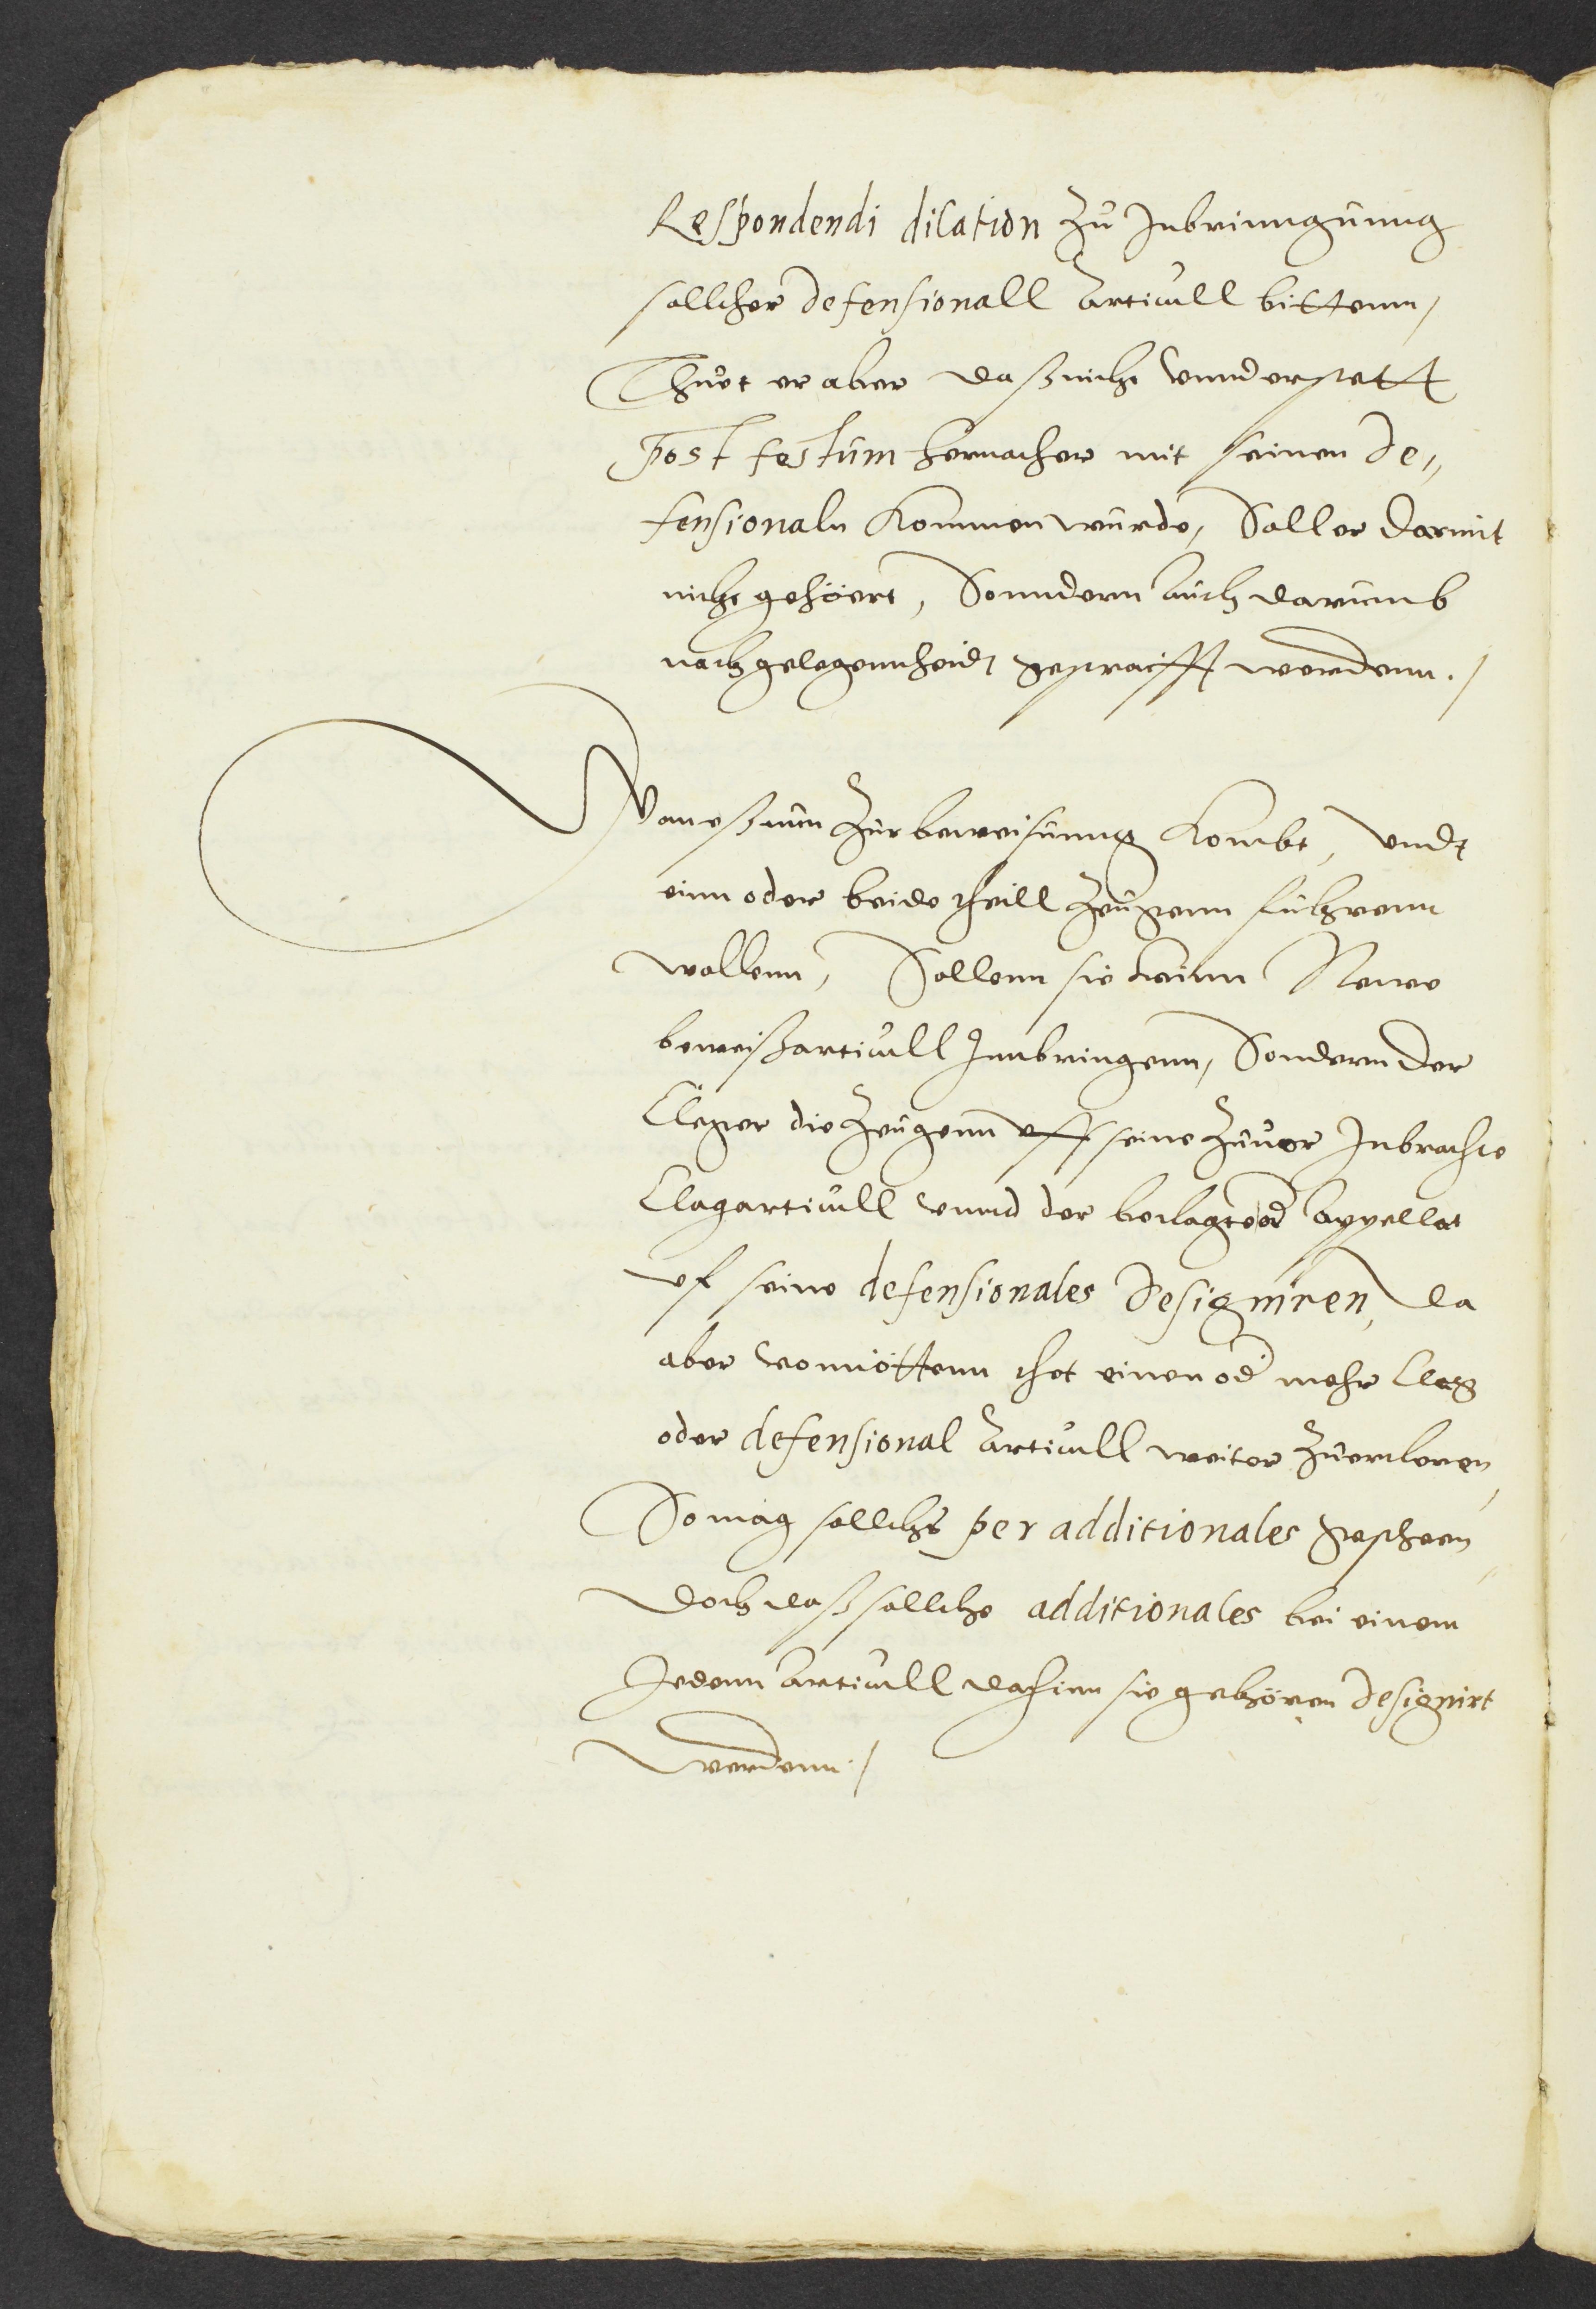 Respondendi dilation zu Inbrinngunng
sollicher defensionall Articull bittenn,
Thuet er aber daß nicht unnd erstatt
Post festum hernacher mit seinen De„
fensionaln kommen wurde, Soll er darmit
nicht gehöert, Sonndern auch darumb
nach gelegennheidt gestraifft werdenn./
Wan eß nun zur beweisunng kombt, undt
einn oder beide theill zeugenn fuhrenn
wollenn, Sollenn sie keinn Newe
beweißarticull Innbringenn, Sondern der
Cleger die zeugenn uff seine zuvor Inbrachte
Clagarticull unnd der beclagte od appellat
uf seine defensionales Designiren, da
aber vonnöttenn thet einen od mehr Clag
oder defensional Articull weiter zuercleren,
So mag sollichs per additionales gescheen,
doch daß solliche additionales bei einem
Jedenn Articull dahinn sie gehören Designirt
werdenn./